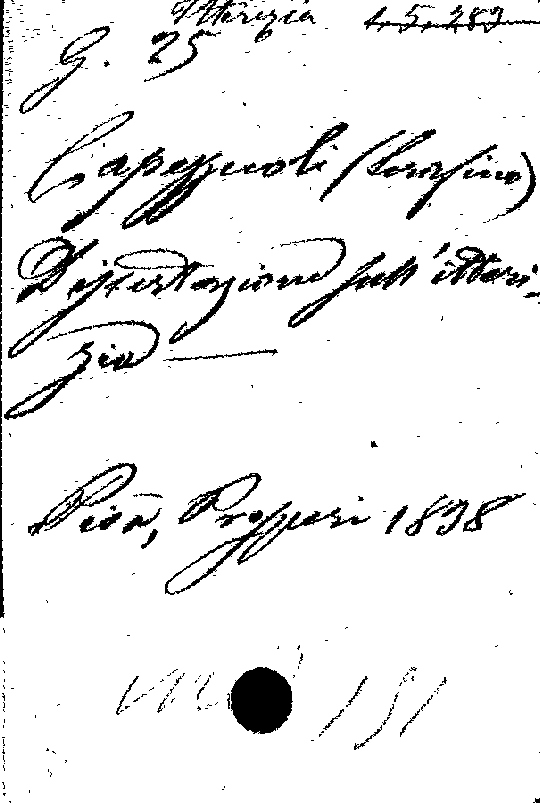 Itterizia 1.5.283
G. 25
Capezzuoli (Serafino)
Dissertazione sull'itteri-
zia —
Pisa, Prosperi 1838